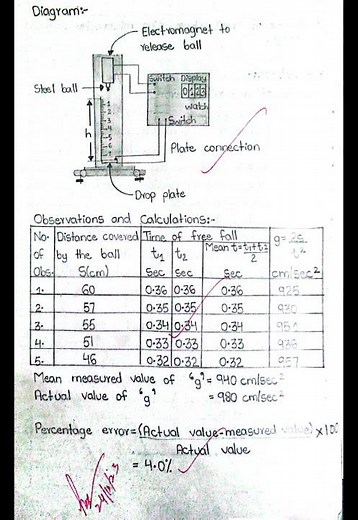 Diagram:-
Electromagnet to
release ball
Steel ball
Switch Display
0123
watch
Switch
h
Plate connection
Drop plate
Observations and Calculations:-
No. of Obs. Distance covered by the ball S(cm) Time of free fall g = 2S/t²
t₁ sec t₂ sec Mean t=t₁+t₂/2 sec cm/sec²
1. 60 0.36 0.36 0.36 925
2. 57 0.35 0.35 0.35 930
3. 55 0.34 0.34 0.34
4. 51 0.33 0.33 0.33
5. 46 0.32 0.32 0.32
Mean measured value of "g" = 940 cm/sec²
Actual value of "g" = 980 cm/sec²
Percentage error=(Actual value-measured value) x 100
Actual value
= 4.0%